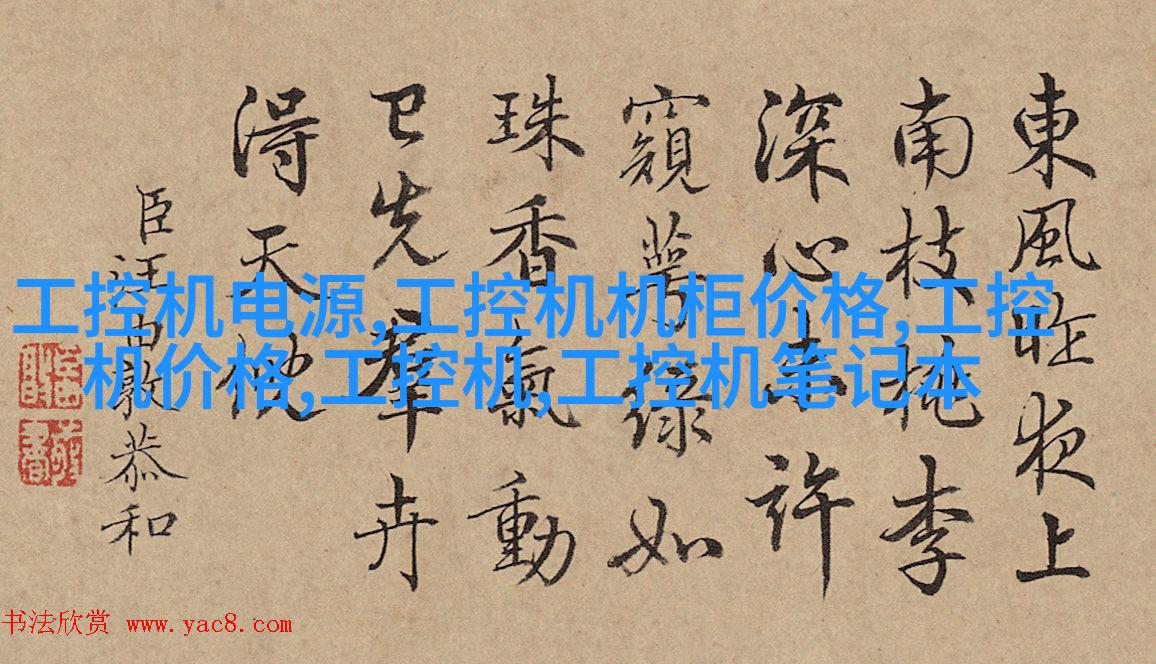 東風昨夜上
南枝桃李
深心未許
窺萼綠如
珠香氣動
已先羣卉
得天
臣汪由敦恭和
工控机电源,工控机机柜价格,工控
机价格,工控机,工控机笔记本
书法欣赏 www.yac8.com